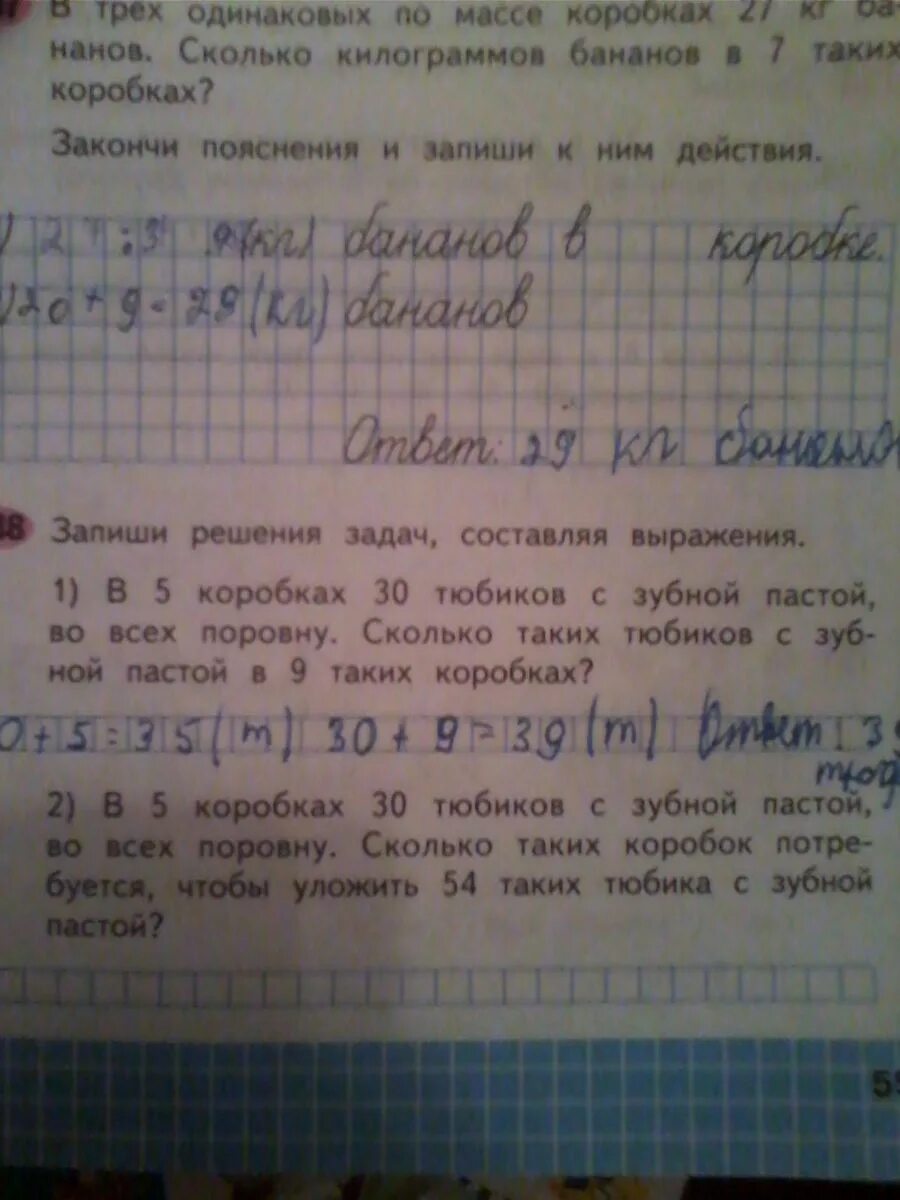 В трех одинаковых по массе коробках 27 кг ба-
нанов. Сколько килограммов бананов в 7 таких
коробках?
Закончи пояснения и запиши к ним действия.
) 27 : 3 9 (кг) бананов в коробке.
) 20 + 9 = 29 (кг) бананов
Ответ: 29 кг
38 Запиши решения задач, составляя выражения.
1) В 5 коробках 30 тюбиков с зубной пастой,
во всех поровну. Сколько таких тюбиков с зуб-
ной пастой в 9 таких коробках?
0 + 5 = 35 (т) 30 + 9 = 39 (т) Ответ : 39
2) В 5 коробках 30 тюбиков с зубной пастой,
во всех поровну. Сколько таких коробок потре-
буется, чтобы уложить 54 таких тюбика с зубной
пастой?